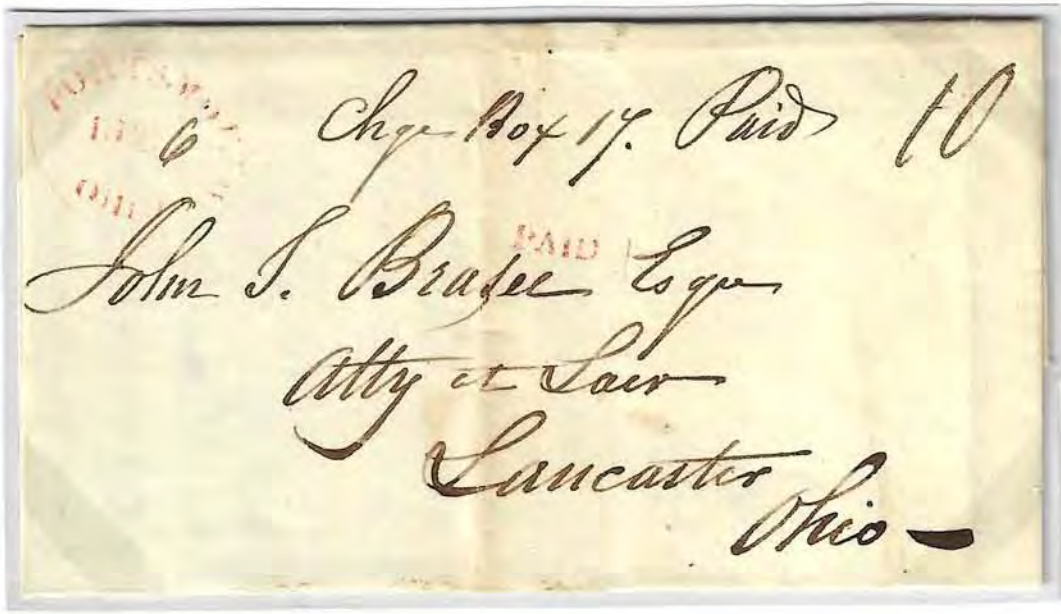 PORTSMOUTH
6
OHIO
Chge Box 17. Paid 10
PAID
John T. Brasee Esqr
Atty at Law
Lancaster
Ohio